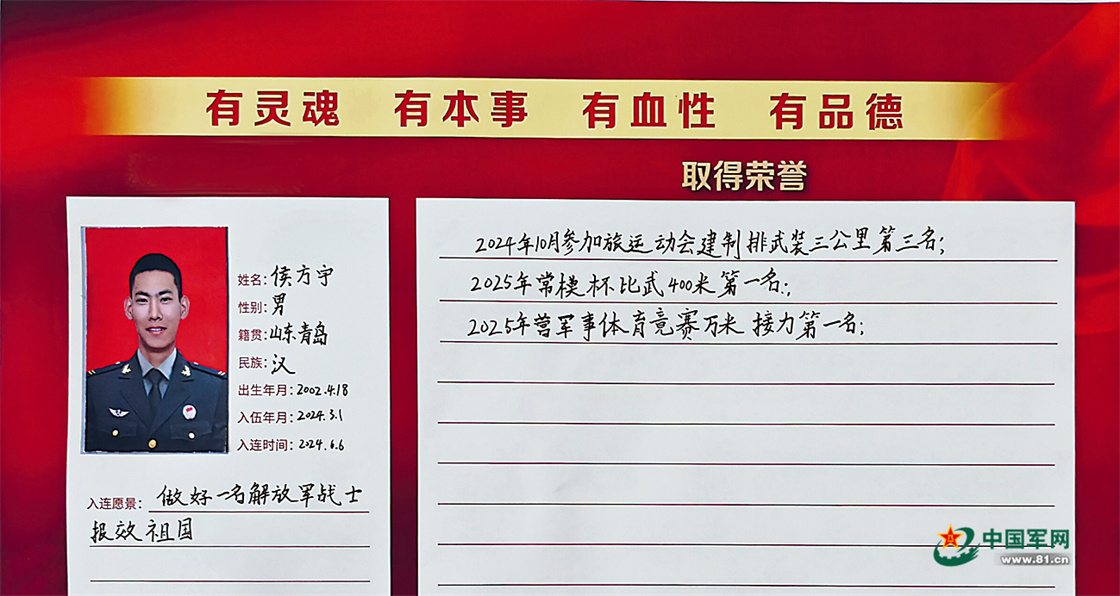 有灵魂 有本事 有血性 有品德
取得荣誉
姓名:侯方宇
性别:男
籍贯:山东青岛
民族:汉
出生年月:2002.4.18
入伍年月:2024.3.1
入连时间:2024.6.6
入连愿景:做好一名解放军战士
报效祖国
2024年10月参加旅运动会建制排武装三公里第三名;
2025年常模杯比武400米第一名;
2025年营军事体育竞赛万米接力第一名;
中国军网
www.81.cn